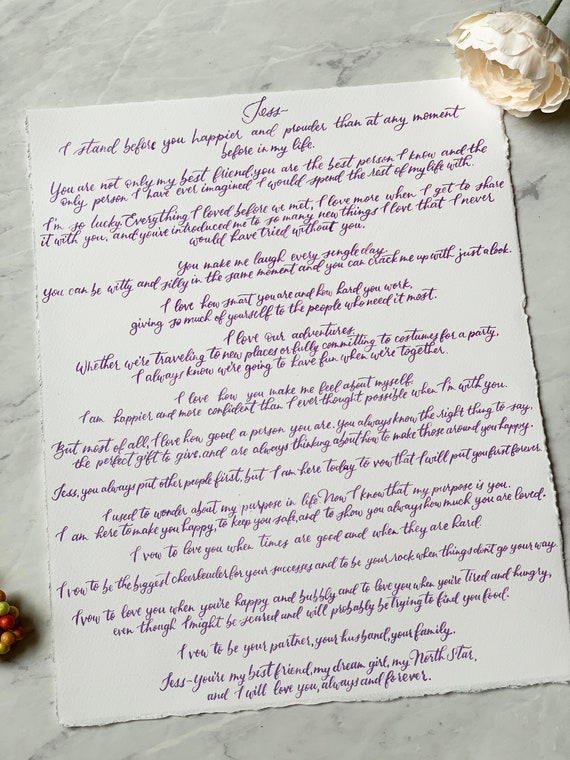 Jess-
I stand before you happier and prouder than at any moment
before in my life.
You are not only my best friend, you are the best person I know and the
only person I have ever imagined I would spend the rest of my life with.
I'm so lucky. Everything I loved before we met, I love more when I get to share
it with you, and you've introduced me to so many new things I love that I never
would have tried without you.
You make me laugh every single day.
You can be witty and silly in the same moment and you can crack me up with just a look.
I love how smart you are and how hard you work,
giving so much of yourself to the people who need it most.
I love our adventures.
Whether we're traveling to new places or fully committing to costumes for a party,
I always know we're going to have fun when we're together.
I love how you make me feel about myself.
I am happier and more confident than I ever thought possible when I'm with you.
But most of all, I love how good a person you are. you always know the right thing to say,
the perfect gift to give, and are always thinking about how to make those around you happy.
Jess, you always put other people first, but I am here today to vow that I will put you first forever.
I used to wonder about my purpose in life. Now I know that my purpose is you.
I am here to make you happy, to keep you safe, and to show you always how much you are loved.
I vow to love you when times are good and when they are hard.
I vow to be the biggest cheerleader for your successes and to be your rock when things don't go your way.
I vow to love you when you're happy and bubbly and to love you when you're tired and hungry,
even though I might be scared and will probably be trying to find you food.
I vow to be your partner, your husband, your family.
Jess-you're my best friend, my dream girl, my North Star,
and I will love you, always and forever.